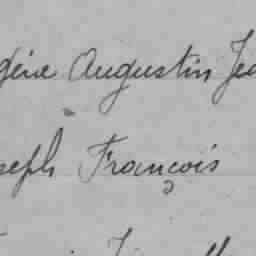 gène Augustin Je
seph François